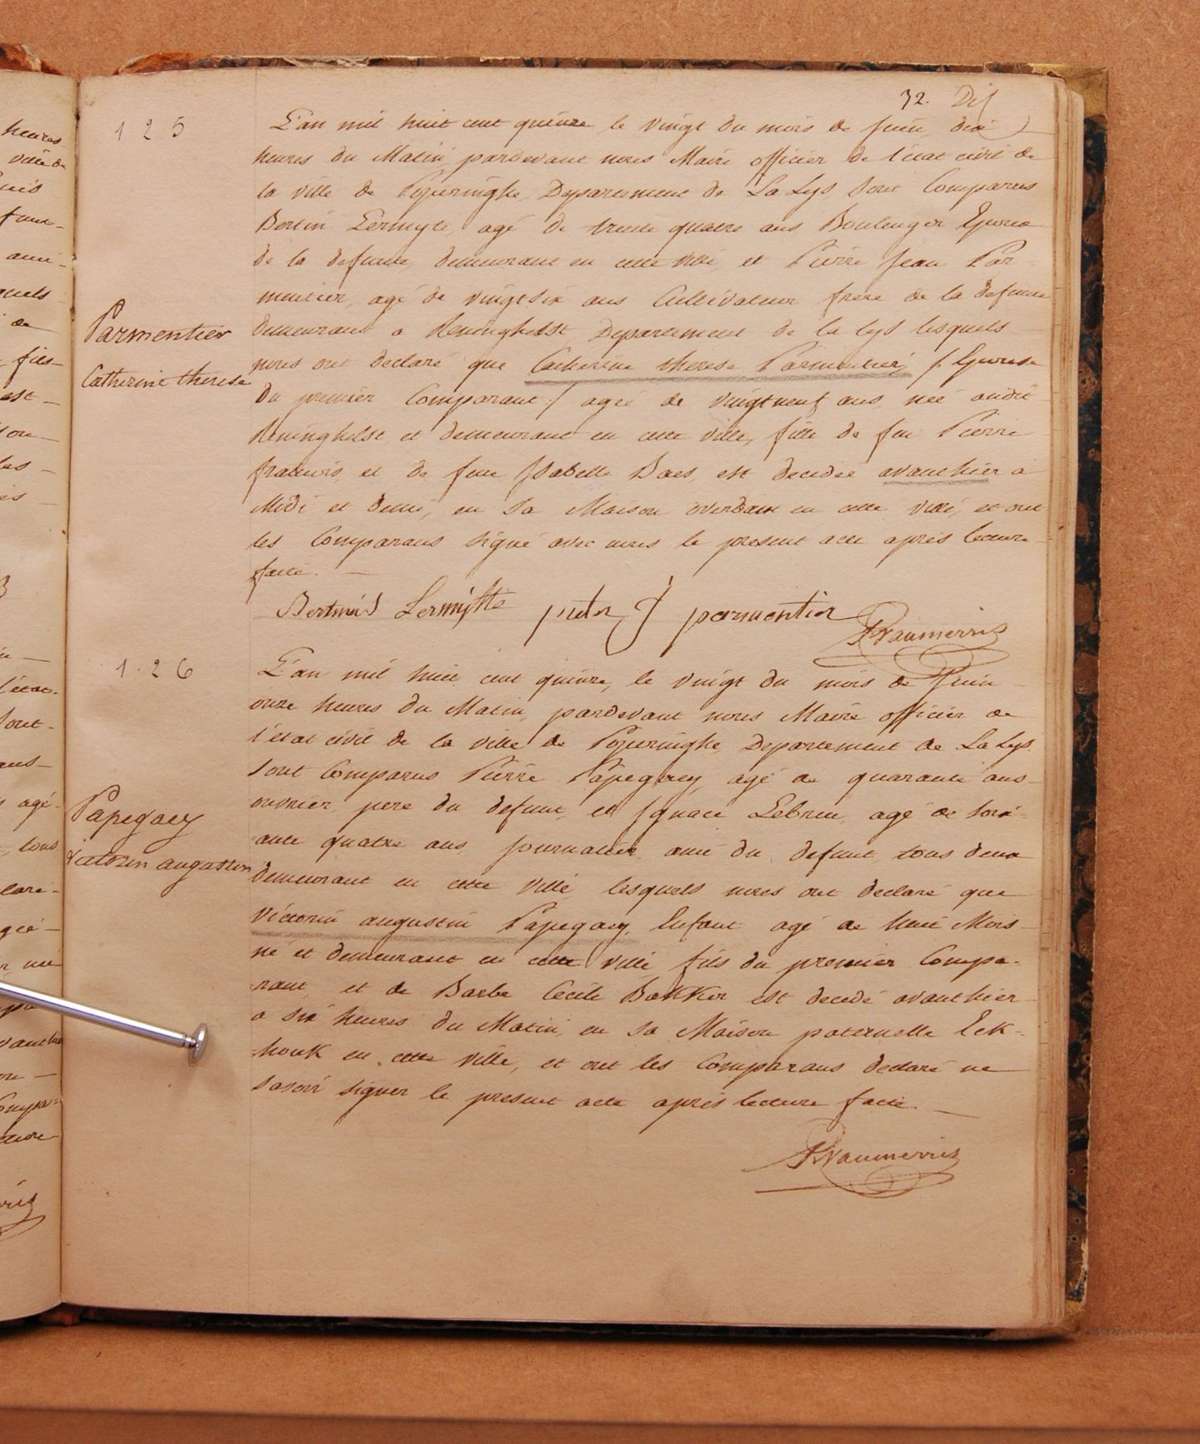 32. Dif
125
L'an mil huit cent quinze, le vingt du mois de Juin dix
heures du Matin, pardevant nous Maire officier de l'état civil de
la ville de Poperinghe, Departement de La Lys, Sont Comparus
Bertin Lermyte, agé de trente quatre ans Boulenger Epoux
de la defunte, demeurant en cette ville, et Pierre Jean Par-
mentier, agé de vingtsix ans Cultivateur frere de la defunte
Parmentier
Catherine therese
demeurant a Reninghelst Departement de la Lys lesquels
nous ont declaré que Catherine therese Parmentier / Epouse
Du premier Comparant / agée de vingtneuf ans née audit
Reninghelst et demeurant en cette ville, fille de feu Pierre
francois, et de feue Isabelle Baes, est decedée avanthier a
Midi et demi, en sa Maison overdam en cette ville, et ont
les Comparans signé avec nous le present acte après lecture
faite.
Bertinus Lermytte pieter J parmentier
PVanmerris
126
L'an mil huit cent quinze, le vingt du mois de Juin
onze heures du Matin, pardevant nous Maire officier de
l'état civil de la ville de Poperinghe Departement de La Lys,
Sont Comparus Pierre Papegaey, agé de quarante ans
Papegaey
victorin augustin
ouvrier, pere du defunt, et Ignace Lebreu, agé de soix-
ante quatre ans journalier, ami du defunt, tous deux
demeurant en cette ville, lesquels nous ont declaré que
Victorin augustin Papegaey, Enfant agé de huit Mois
né et demeurant en cette ville fils du premier Compa-
rant, et de Barbe Cecile Bakker est decedé avanthier
a six heures du Matin, en sa Maison paternelle Eek-
houk en cette ville, et ont les Comparans declaré ne
savoir signer le present acte après lecture faite.
PVanmerris